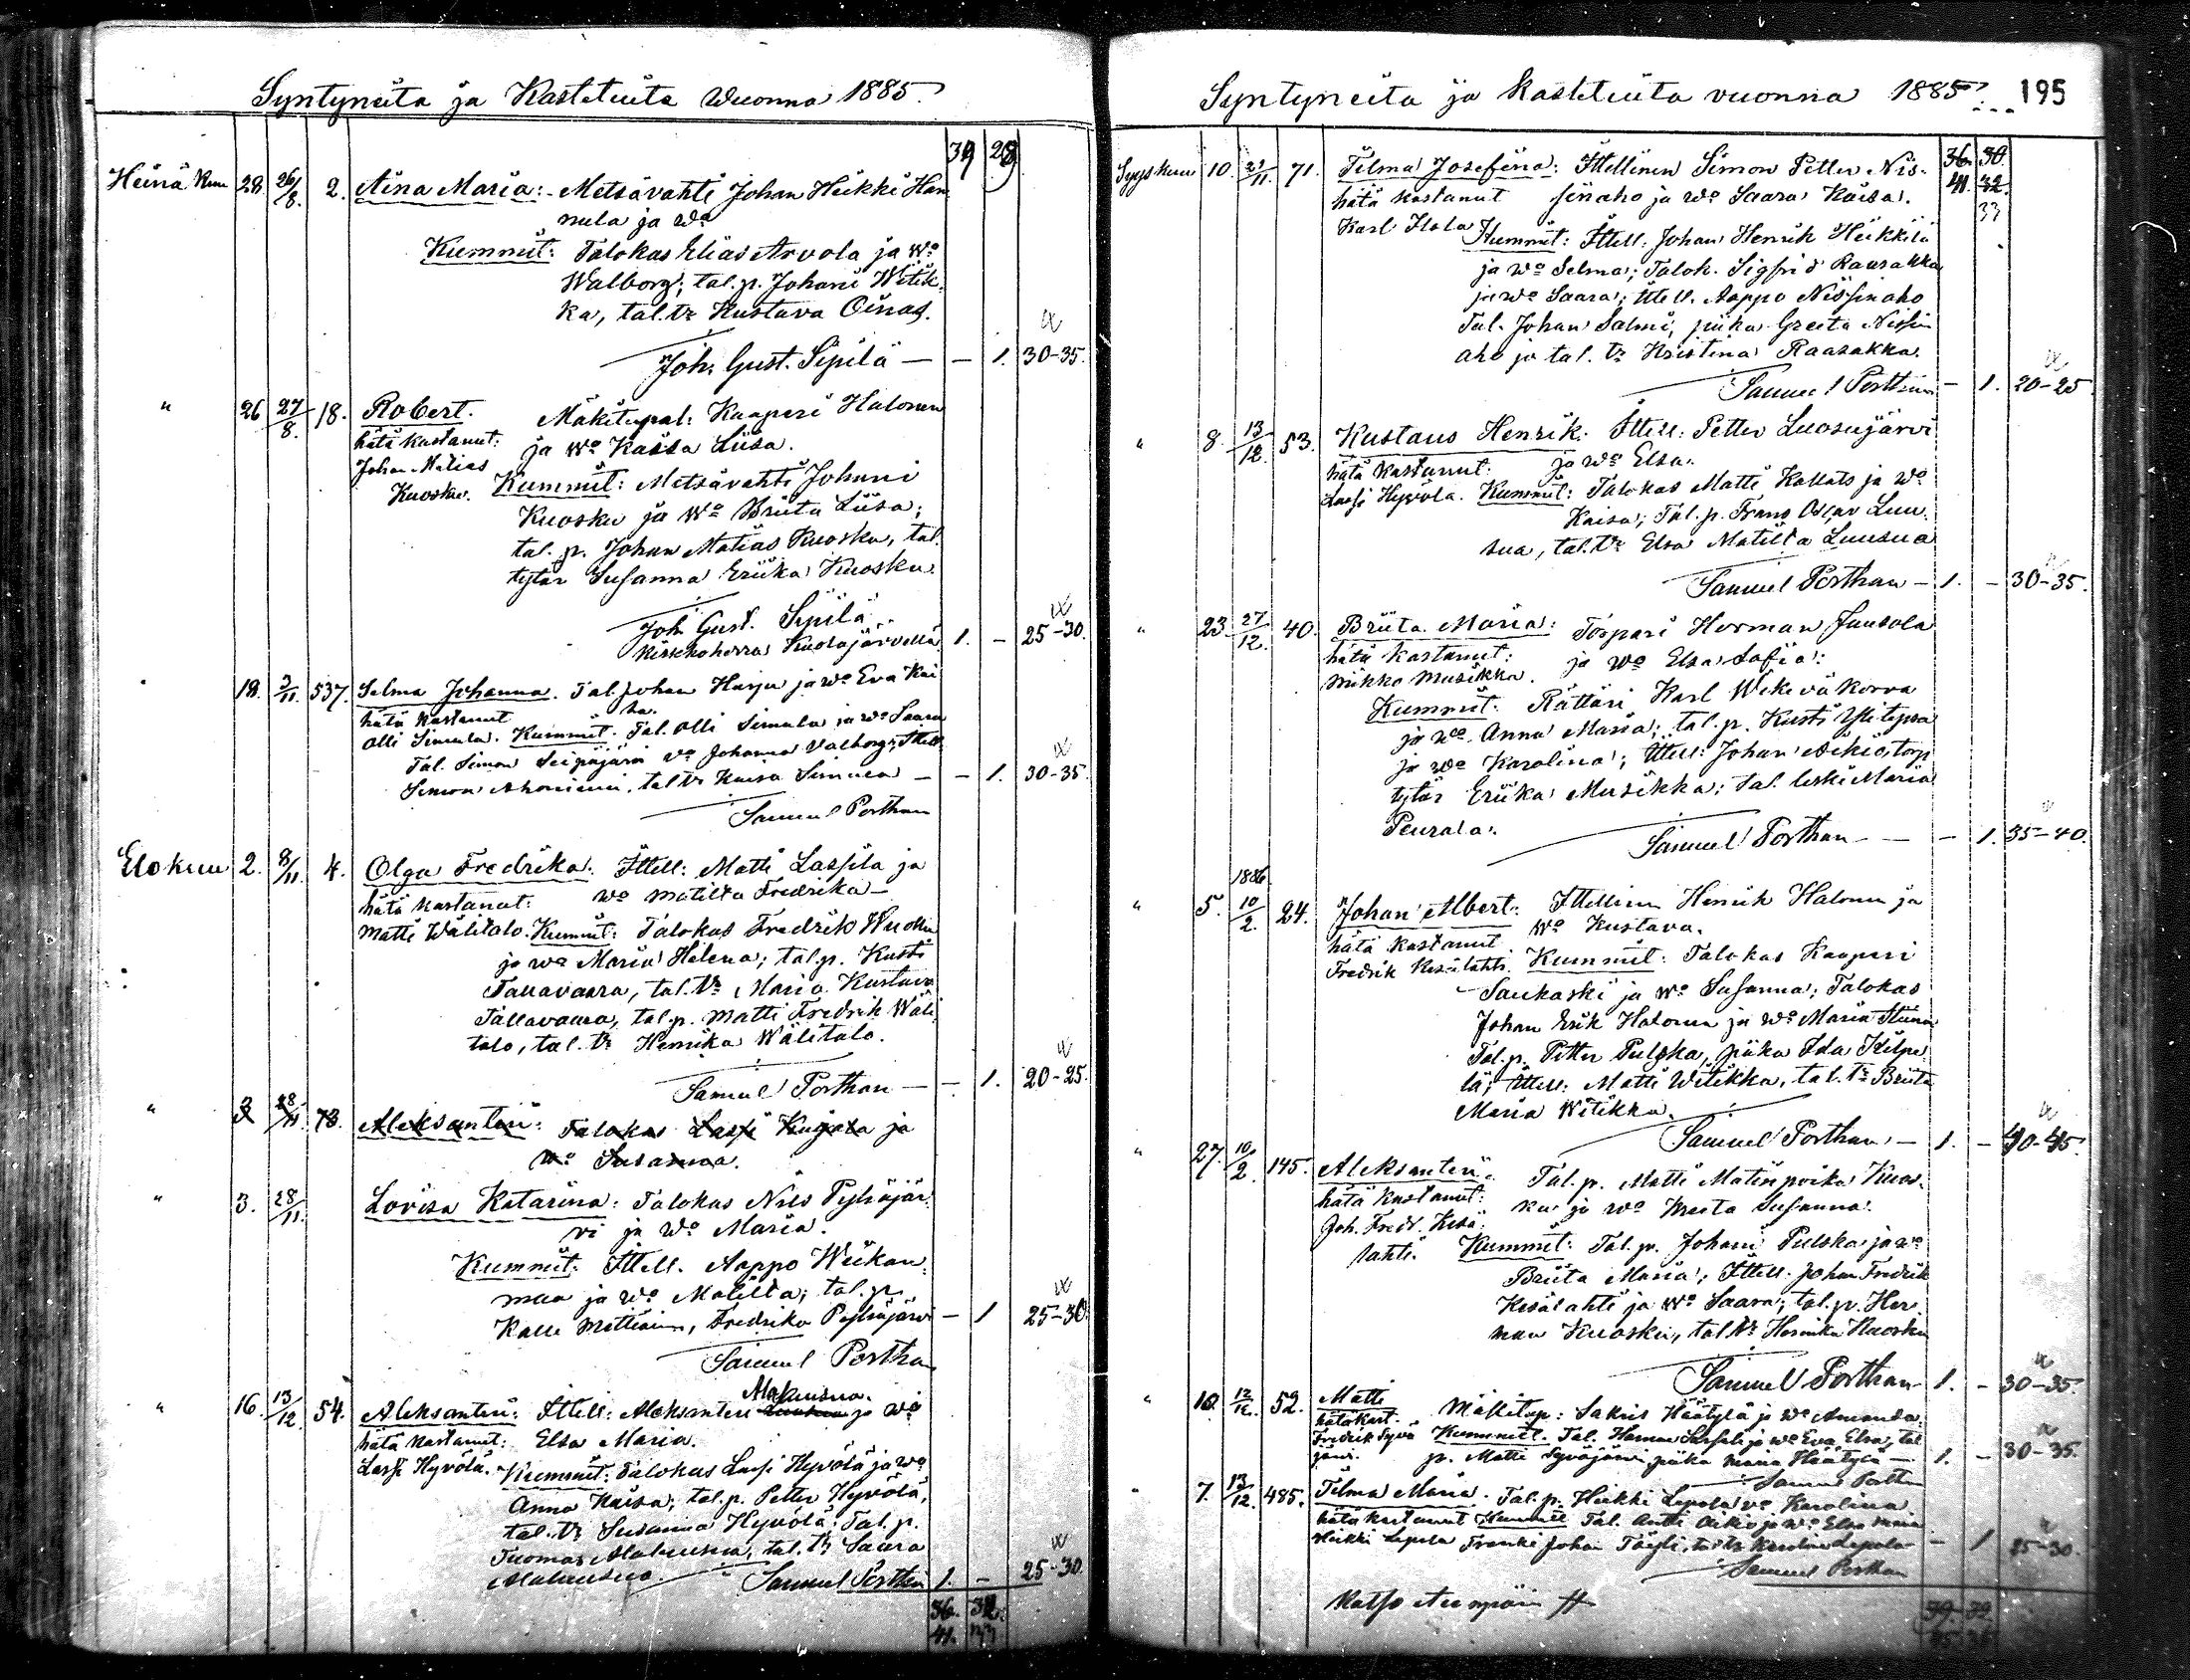 Syntyneitä ja Kastetuita Wuonna 1885.
39 28
Heinä Kuu 28. 26/8. 2. Aina Maria: Metsävahti Johan Heikki Han
nula ja Wo
Kummit: Talokas Elias Arvola ja Wo
Walborg; tal. p. Johani Witik
ka, tal. tr Kustava Oinas.
Joh. Gust. Sipilä — — 1. 30-35.
" 26 27/8. 18. Robert. Mäkitupal: Kaaperi Halonen
hätä kastanut: ja Wo Kaisa Liisa.
Johan Matias
Kuosku. Kummit: Metsävahti Johani
Kuosku ja Wo Briita Liisa;
tal. p. Johan Matias Kuosku, tal.
tytär Susanna Eriika Kuosku.
Joh Gust. Sipilä
Kirkkoherra Kuolajärvellä 1. — 25-30.
18. 3/11. 537. Selma Johanna. Tal. Johan Harju ja wo Eva Kai
sa.
hätä kastanut
Olli Simula. Kummit. Tal. Olli Simula ja wo Saara
Tal. Simon Seipäjärvi vo Johanna Valborg; Ittell.
Simon Ahoniemi, tal. tr Kaisa Simula — — 1. 30-35
Samuel Porthan
Elokuu 2. 8/11. 4. Olga Fredrika: Ittell: Matti Lassila ja
hätä kastanut: Wo Matilta Fredrika —
Matti Wälitalo. Kummit: Talokas Fredrik Kuosku
ja wo Maria Helena; tal. p. Kusti
Tallavaara, tal. tr Maria Kustava
Tallavaara, tal. p. Matti Fredrik Wäli
talo, tal. tr Henrika Wälitalo.
Samuel Porthan — — 1. 20-25.
" 3 28/11 73. Aleksanteri: Talokas Lassi Kujala ja
Wo Susanna.
" 3. 28/11. Lovisa Katarina: Talokas Nils Pyhäjär
vi ja Wo Maria.
Kummit: Ittell. Aappo Weikan
maa ja Wo Matilta; tal. p.
Kalle Martiainen, Fredrika Pyhäjärvi — 1 25-30.
Samuel Porthan
Alakuusua.
" 16. 13/12 54. Aleksanteri: Ittell: Aleksanteri ja Wo
hätä kastanut: Elsa Maria.
Lassi Hyvölä. Kummit: Talokas Lassi Hyvölä ja wo
Anna Kaisa; tal. p. Petter Hyvölä,
tal. tr Susanna Hyvölä; Tal. p.
Tuomas Alakuusua, tal. tr Saara
Alakuusua. Samuel Porthan 1. — 25-30.
36. 32.
41. 33
Syntyneitä ja Kastetuita vuonna 1885. 195
36. 30.
41. 32.
33
Syyskuu 10. 22/11. 71. Tilma Josefina: Ittellinen Simon Petter Nis-
hätä kastanut sinaho ja Wo Saara Kaisa.
Karl Ilola
Kummit: Ittell. Johan Henrik Heikkilä
ja wo Selma; Talok. Sigfrid Raasakka
ja wo Saara; Ittell. Aappo Nissinaho
Tal. Johan Salmi, piika Greeta Nissin
aho ja tal. tr Kristina Raasakka.
Samuel Porthan — 1. 20-25
" 8. 13/12. 53. Kustaus Henrik. Ittell: Petter Luosujärvi
hätä kastanut: ja Wo Elsa.
Lassi Hyvölä. Kummit: Talokas Matti Kallats ja Wo
Kaisa; Tal. p. Frans Oscar Luu
sua, tal. tr Elsa Matilta Luusua
Samuel Porthan — 1. — 30-35.
" 23 27/12. 40. Briita Maria: Torpari Herman Juusola
hätä kastanut: ja Wo Elsa Sofia:
Mikko Musikka.
Kummit: Rättäri Karl Wäkeväkorva
ja wo Anna Maria; tal. p. Kusti Yliteppa
ja wo Karolina; Ittell: Johan Aikio, torp.
tytär Eriika Musikka; tal. leski Maria
Peurala.
Samuel Porthan — — 1. 35-40.
1886
" 5. 10/2. 24. Johan Albert: Ittellinen Henrik Halonen ja
Wo Kustava.
hätä kastanut
Fredrik Kesälahti. Kummit: Talokas Kaaperi
Saukoski ja Wo Susanna; Talokas
Johan Erik Halonen ja Wo Maria Stiina
Tal. p. Petter Pulska, piika Ida Kilpe
lä; Ittell: Matti Witikka, tal. tr Briita
Maria Witikka.
Samuel Porthan — 1. — 40-45.
" 27. 10/2 145. Aleksanteri: Tal. p. Matti Matinpoika Kuos-
hätä kastanut: ku ja Wo Greta Susanna.
Joh. Fredr. Kesä
lahti. Kummit: Tal. p. Johani Pulska ja wo
Briita Maria; Ittell. Johan Fredrik
Kesälahti ja Wo Saara; tal. p. Her
man Kuosku, tal. tr Henrika Kuosku
Samuel Porthan 1. — 30-35.
" 10. 12/12. 52. Matti Mäkitup: Sakris Häätylä ja Wo Amanda.
hätäkast.
Fredrik Syvä
järvi. Kummit. Tal. Herman ja Wo Eva Elsa, tal.
p. Matti Syväjärvi piika Maria Häätylä — 1. — 30-35.
Samuel Porthan
" 7. 13/12. 485. Tilma Maria. Tal. p. Heikki Lepola vo Karolina
hätä kastanut Kummit Tal. Antti Aikio ja Wo Elsa Maria
Heikki Lepola Frenki Johan, tal. tr Karolina Lepola — 1 25-30.
Samuel Porthan
Katso eteenpäin #
39 39